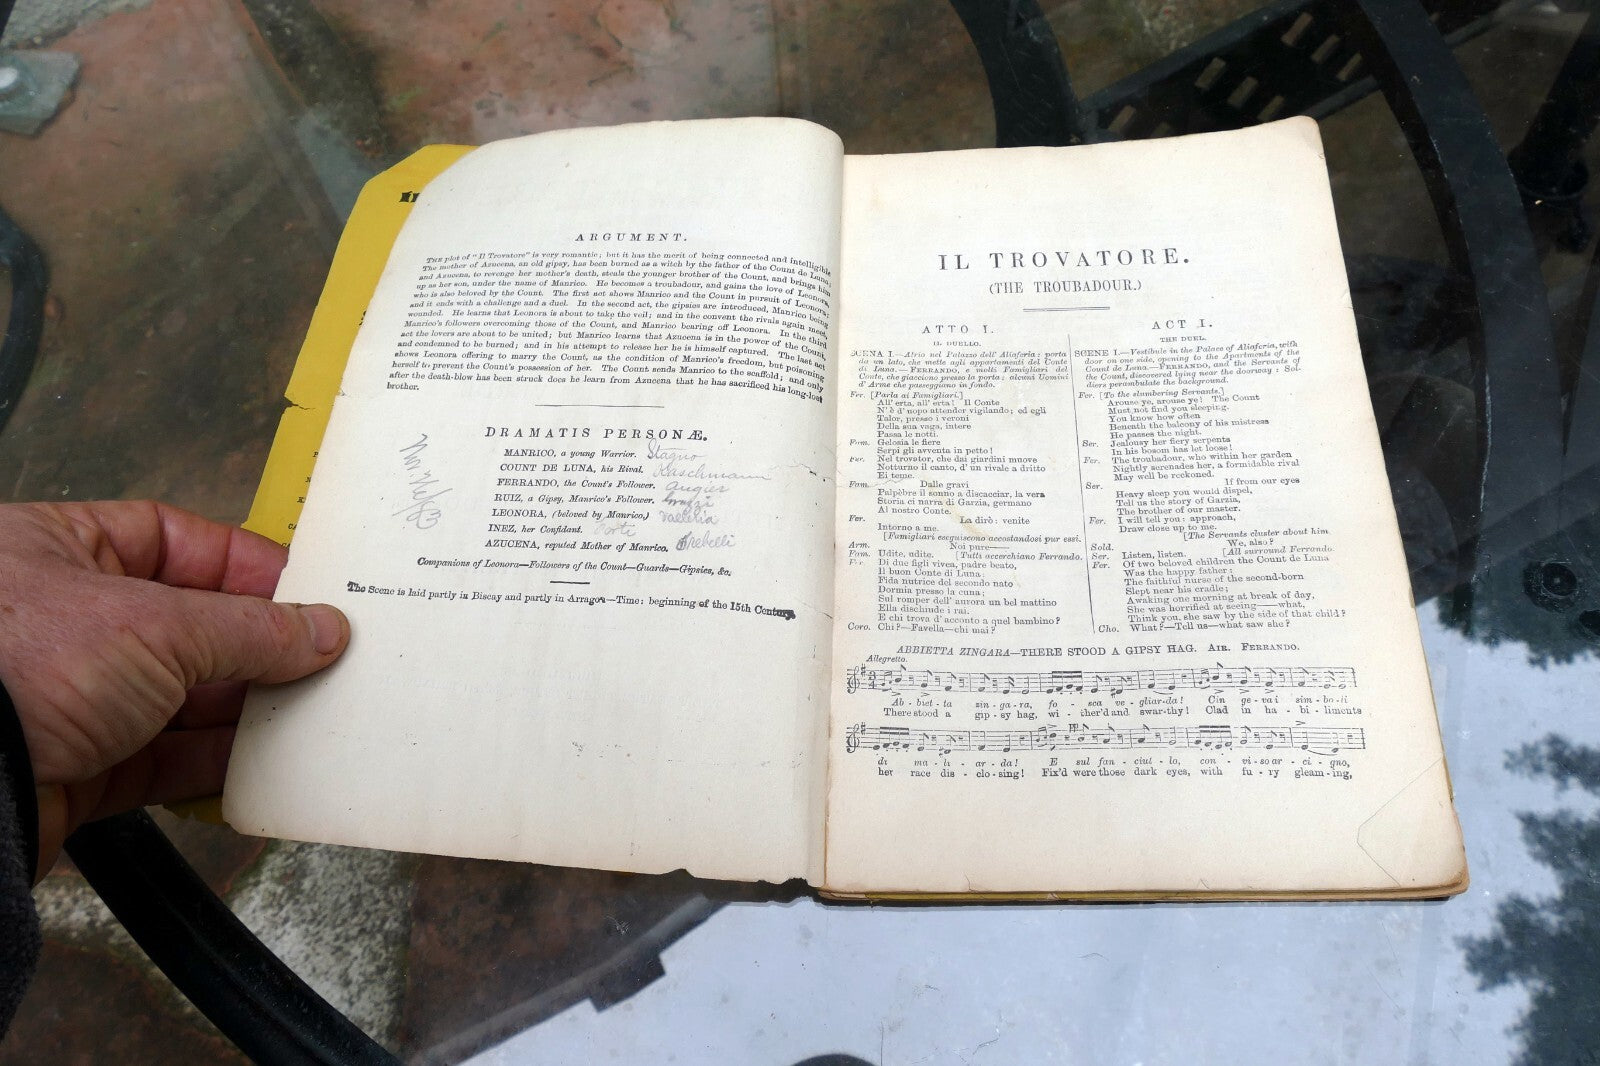 ARGUMENT.
THE plot of "Il Trovatore" is very romantic; but it has the merit of being connected and intelligible
The mother of Azucena, an old gipsy, has been burned as a witch by the father of the Count de Luna;
and Azucena, to revenge her mother's death, steals the younger brother of the Count, and brings him
up as her son, under the name of Manrico. He becomes a troubadour, and gains the love of Leonora,
who is also beloved by the Count. The first act shows Manrico and the Count in pursuit of Leonora;
and it ends with a challenge and a duel. In the second act, the gipsies are introduced, Manrico being
wounded. He learns that Leonora is about to take the veil; and in the convent the rivals again meet,
Manrico's followers overcoming those of the Count, and Manrico bearing off Leonora. In the third
act the lovers are about to be united; but Manrico learns that Azucena is in the power of the Count,
and condemned to be burned; and in his attempt to release her he is himself captured. The last act
shows Leonora offering to marry the Count, as the condition of Manrico's freedom, but poisoning
herself to prevent the Count's possession of her. The Count sends Manrico to the scaffold; and only
after the death-blow has been struck does he learn from Azucena that he has sacrificed his long-lost
brother.
DRAMATIS PERSONÆ.
MANRICO, a young Warrior. Stagno
COUNT DE LUNA, his Rival. Kaschmann
FERRANDO, the Count's Follower. Augier
RUIZ, a Gipsy, Manrico's Follower. Grazzi
LEONORA, (beloved by Manrico,) Valleria
INEZ, her Confidant. Forti
AZUCENA, reputed Mother of Manrico. Trebelli
Companions of Leonora—Followers of the Count—Guards—Gipsies, &c.
The Scene is laid partly in Biscay and partly in Arragon—Time: beginning of the 15th Century.
IL TROVATORE.
(THE TROUBADOUR.)
ATTO I.
IL DUELLO.
SCENA I.—Atrio nel Palazzo dell' Aliaferia: porta
da un lato, che mette agli appartamenti del Conte
di Luna.—FERRANDO, e molti Famigliari del
Conte, che giacciono presso la porta: alcuni Uomini
d' Arme che passeggiano in fondo.
Fer. [Parla ai Famigliari.]
All' erta, all' erta! Il Conte
N' è d' uopo attender vigilando; ed egli
Talor, presso i veroni
Della sua vaga, intere
Passa le notti.
Fam. Gelosia le fiere
Serpi gli avventa in petto!
Fer. Nel trovator, che dai giardini muove
Notturno il canto, d' un rivale a dritto
Ei teme.
Fam. Dalle gravi
Palpèbre il sonno a discacciar, la vera
Storia ci narra di Garzia, germano
Al nostro Conte.
Fer. La dirò: venite
Intorno a me.
[Famigliari eseguiscono accostandosi pur essi.
Arm. Noi pure—
Fam. Udite, udite. [Tutti accerchiano Ferrando.
Fer. Di due figli vivea, padre beato,
Il buon Conte di Luna:
Fida nutrice del secondo nato
Dormia presso la cuna;
Sul romper dell' aurora un bel mattino
Ella dischiude i rai.
E chi trova d' acconto a quel bambino?
Coro. Chi?—Favella—chi mai?
ACT I.
THE DUEL.
SCENE I.—Vestibule in the Palace of Aliaferia, with
door on one side, opening to the Apartments of the
Count de Luna.—FERRANDO, and the Servants of
the Count, discovered lying near the doorway: Sol.
diers perambulate the background.
Fer. [To the slumbering Servants.]
Arouse ye, arouse ye! The Count
Must not find you sleeping.
You know how often
Beneath the balcony of his mistress
He passes the night.
Ser. Jealousy her fiery serpents
In his bosom has let loose!
Fer. The troubadour, who within her garden
Nightly serenades her, a formidable rival
May well be reckoned.
Ser. If from our eyes
Heavy sleep you would dispel,
Tell us the story of Garzia,
The brother of our master.
Fer. I will tell you: approach,
Draw close up to me.
[The Servants cluster about him.
Sold. We, also?
Ser. Listen, listen. [All surround Ferrando.
Fer. Of two beloved children the Count de Luna
Was the happy father:
The faithful nurse of the second-born
Slept near his cradle;
Awaking one morning at break of day,
She was horrified at seeing—what,
Think you, she saw by the side of that child?
Cho. What?—Tell us—what saw she?
ABBIETTA ZINGARA—THERE STOOD A GIPSY HAG. AIR. FERRANDO.
Allegretto.
Ab - biet - ta zin - ga - ra, fo - sca ve - gliar-da! Cin ge - va i sim - bo-li
There stood a gip - sy hag, wi - ther'd and swar-thy! Clad in ha - bi - liments
di ma - li - ar - da! E sul fan - ciul - lo, con - vi - so ar - ci - gno,
her race dis - clo - sing! Fix'd were those dark eyes, with fu - ry gleam - ing,